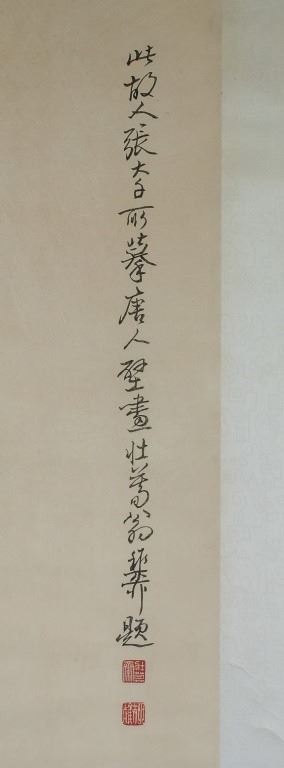 此故人張大千所摹唐人壁畫壯暮翁稚柳題